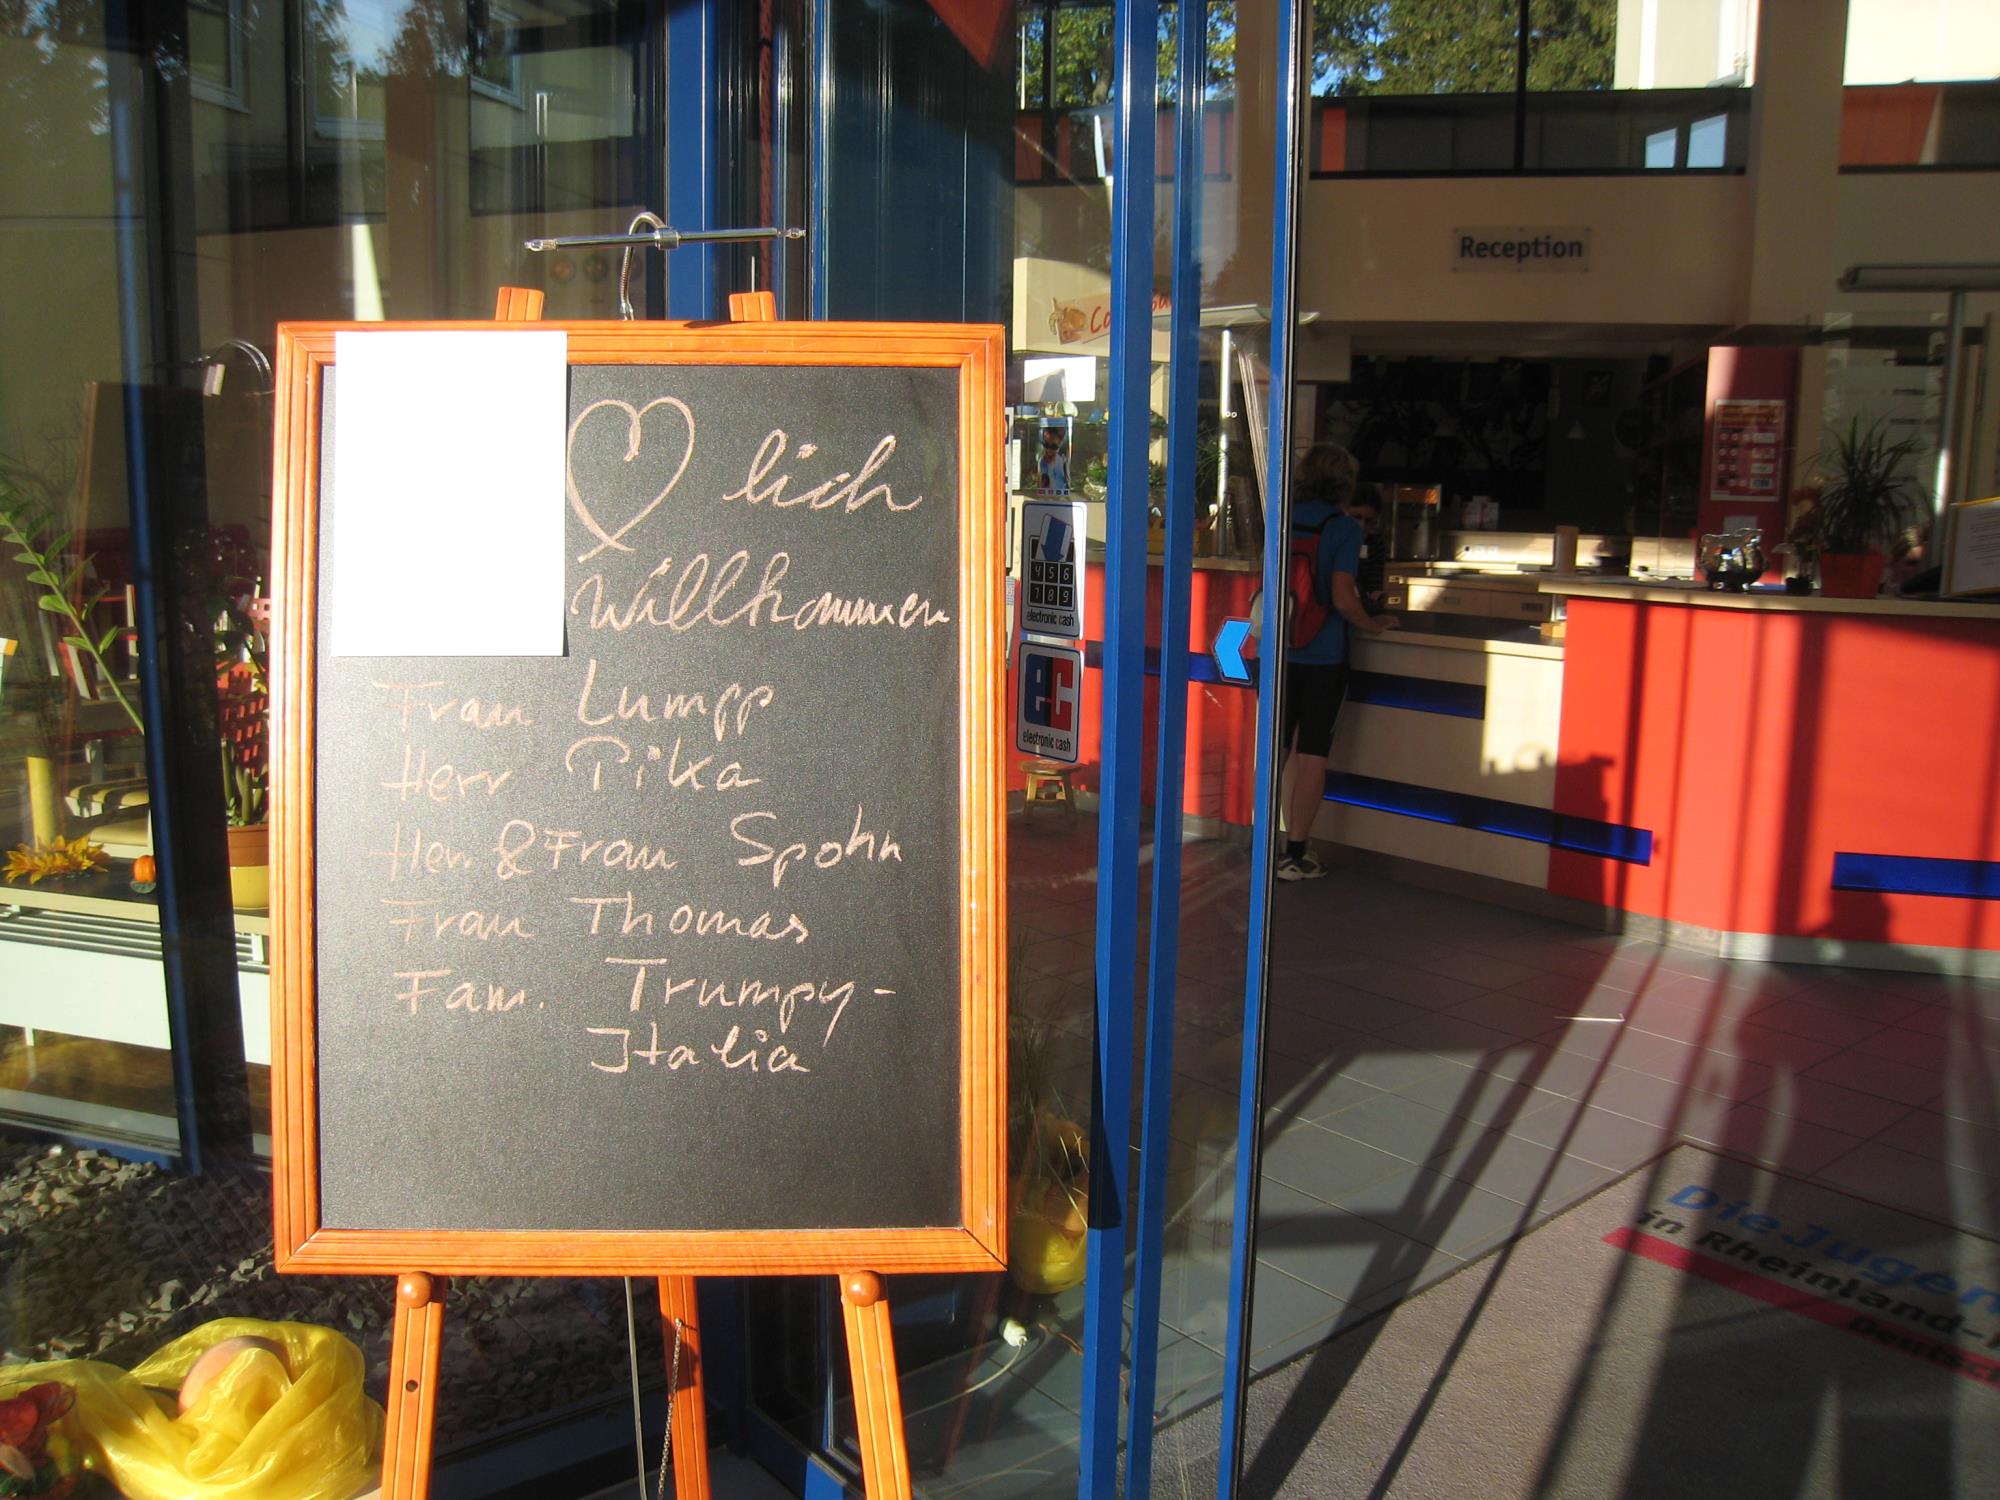 lich
Willkommen
Frau Lumpp
Herr Pika
Herr & Frau Spohn
Frau Thomas
Fam. Trumpy-
Italia
Reception
4 5 6
7 8 9
electronic cash
ec
electronic cash
Die Jugen
in Rheinland-
Deutsc